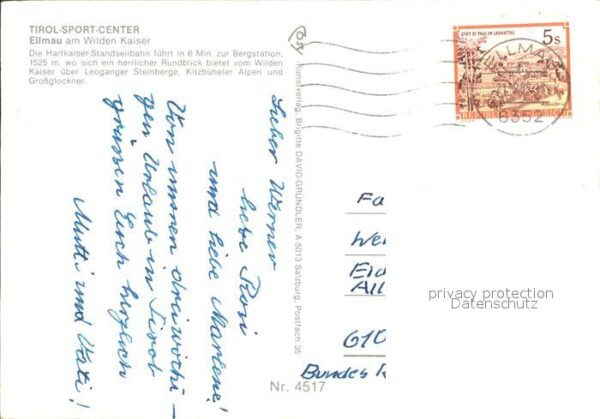 TIROL-SPORT-CENTER
Ellmau am Wilden Kaiser
Die Hartkaiser-Standseilbahn führt in 6 Min. zur Bergstation,
1525 m, wo sich ein herrlicher Rundblick bietet vom Wilden
Kaiser über Leoganger Steinberge, Kitzbüheler Alpen und
Großglockner.
Lieber Werner
liebe Rosi
und liebe Marlene!
Von unserem dreiwöchi-
gen Urlaub in Tirol
grüssen Euch herzlich
Mutti und Vati!
Kunstverlag, Brigitte DAVID-GRÜNDLER, A 5013 Salzburg, Postfach 35
Nr. 4517
STIFT ST. PAUL IM LAVANTTAL
5s
REPUBLIK ÖSTERREICH
ELLMAU
6352
Fa
We
All
610
Bundes R
privacy protection
Datenschutz